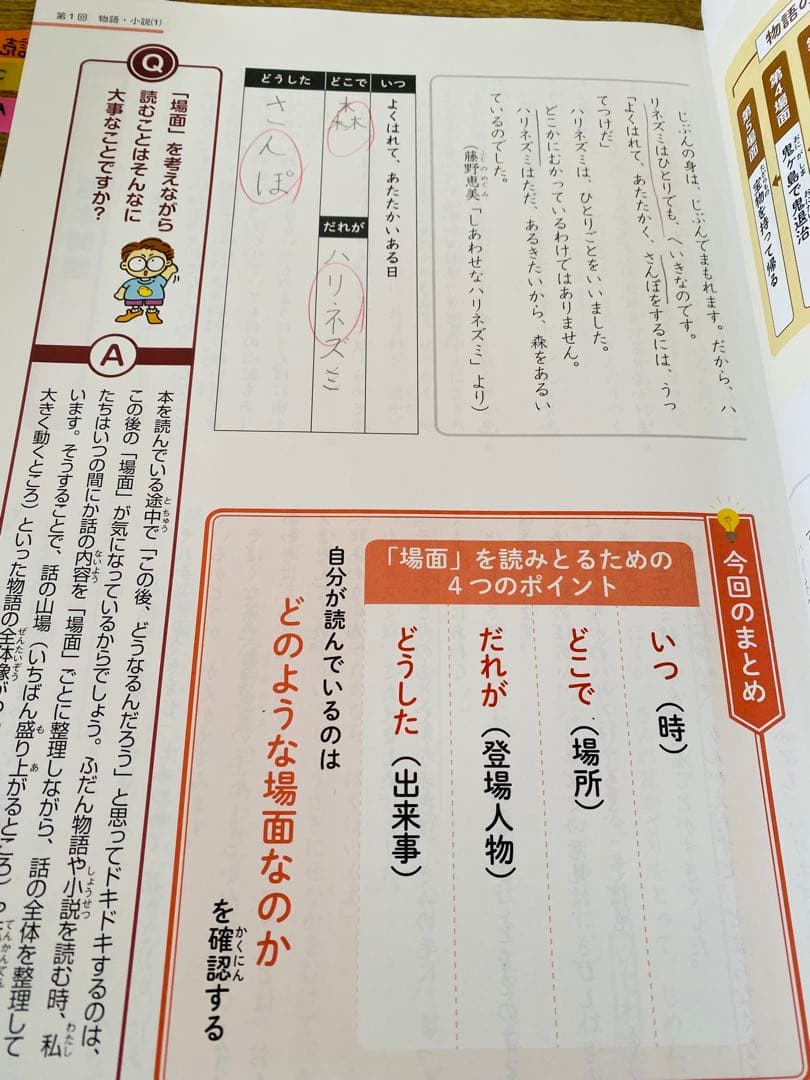 第1回 物語・小説(1)
物語の
第4場面
鬼ヶ島で鬼退治
おにしま
第5場面
宝物を持って帰る
たからもの
じぶんの身は、じぶんでまもれます。だから、ハ
リネズミはひとりでも、へいきなのです。
「よくはれて、あたたかく、さんぽをするには、うっ
てつけだ」
ハリネズミは、ひとりごとをいいました。
どこかにむかっているわけではありません。
ハリネズミはただ、あるきたいから、森をあるい
ているのでした。
(藤野恵美「しあわせなハリネズミ」より)
ふじのめぐみ
いつ
よくはれて、あたたかいある日
どこで
森
だれが
ハリネズミ
どうした
さんぽ
今回のまとめ
「場面」を読みとるための
4つのポイント
いつ(時)
どこで(場所)
だれが(登場人物)
どうした(出来事)
自分が読んでいるのは
どのような場面なのか
を確認する
かくにん
Q
「場面」を考えながら
読むことはそんなに
大事なことですか?
A
本を読んでいる途中で「この後、どうなるんだろう」と思ってドキドキするのは、
とちゅう
この後の「場面」が気になっているからでしょう。ふだん物語や小説を読む時、私
しょうせつ
わたし
たちはいつの間にか話の内容を「場面」ごとに整理しながら、話の全体を整理して
ないよう
います。そうすることで、話の山場(いちばん盛り上がるところ)や
もあ
てんかんてん
大きく動くところ)といった物語の全体像が
ぜんたいぞう